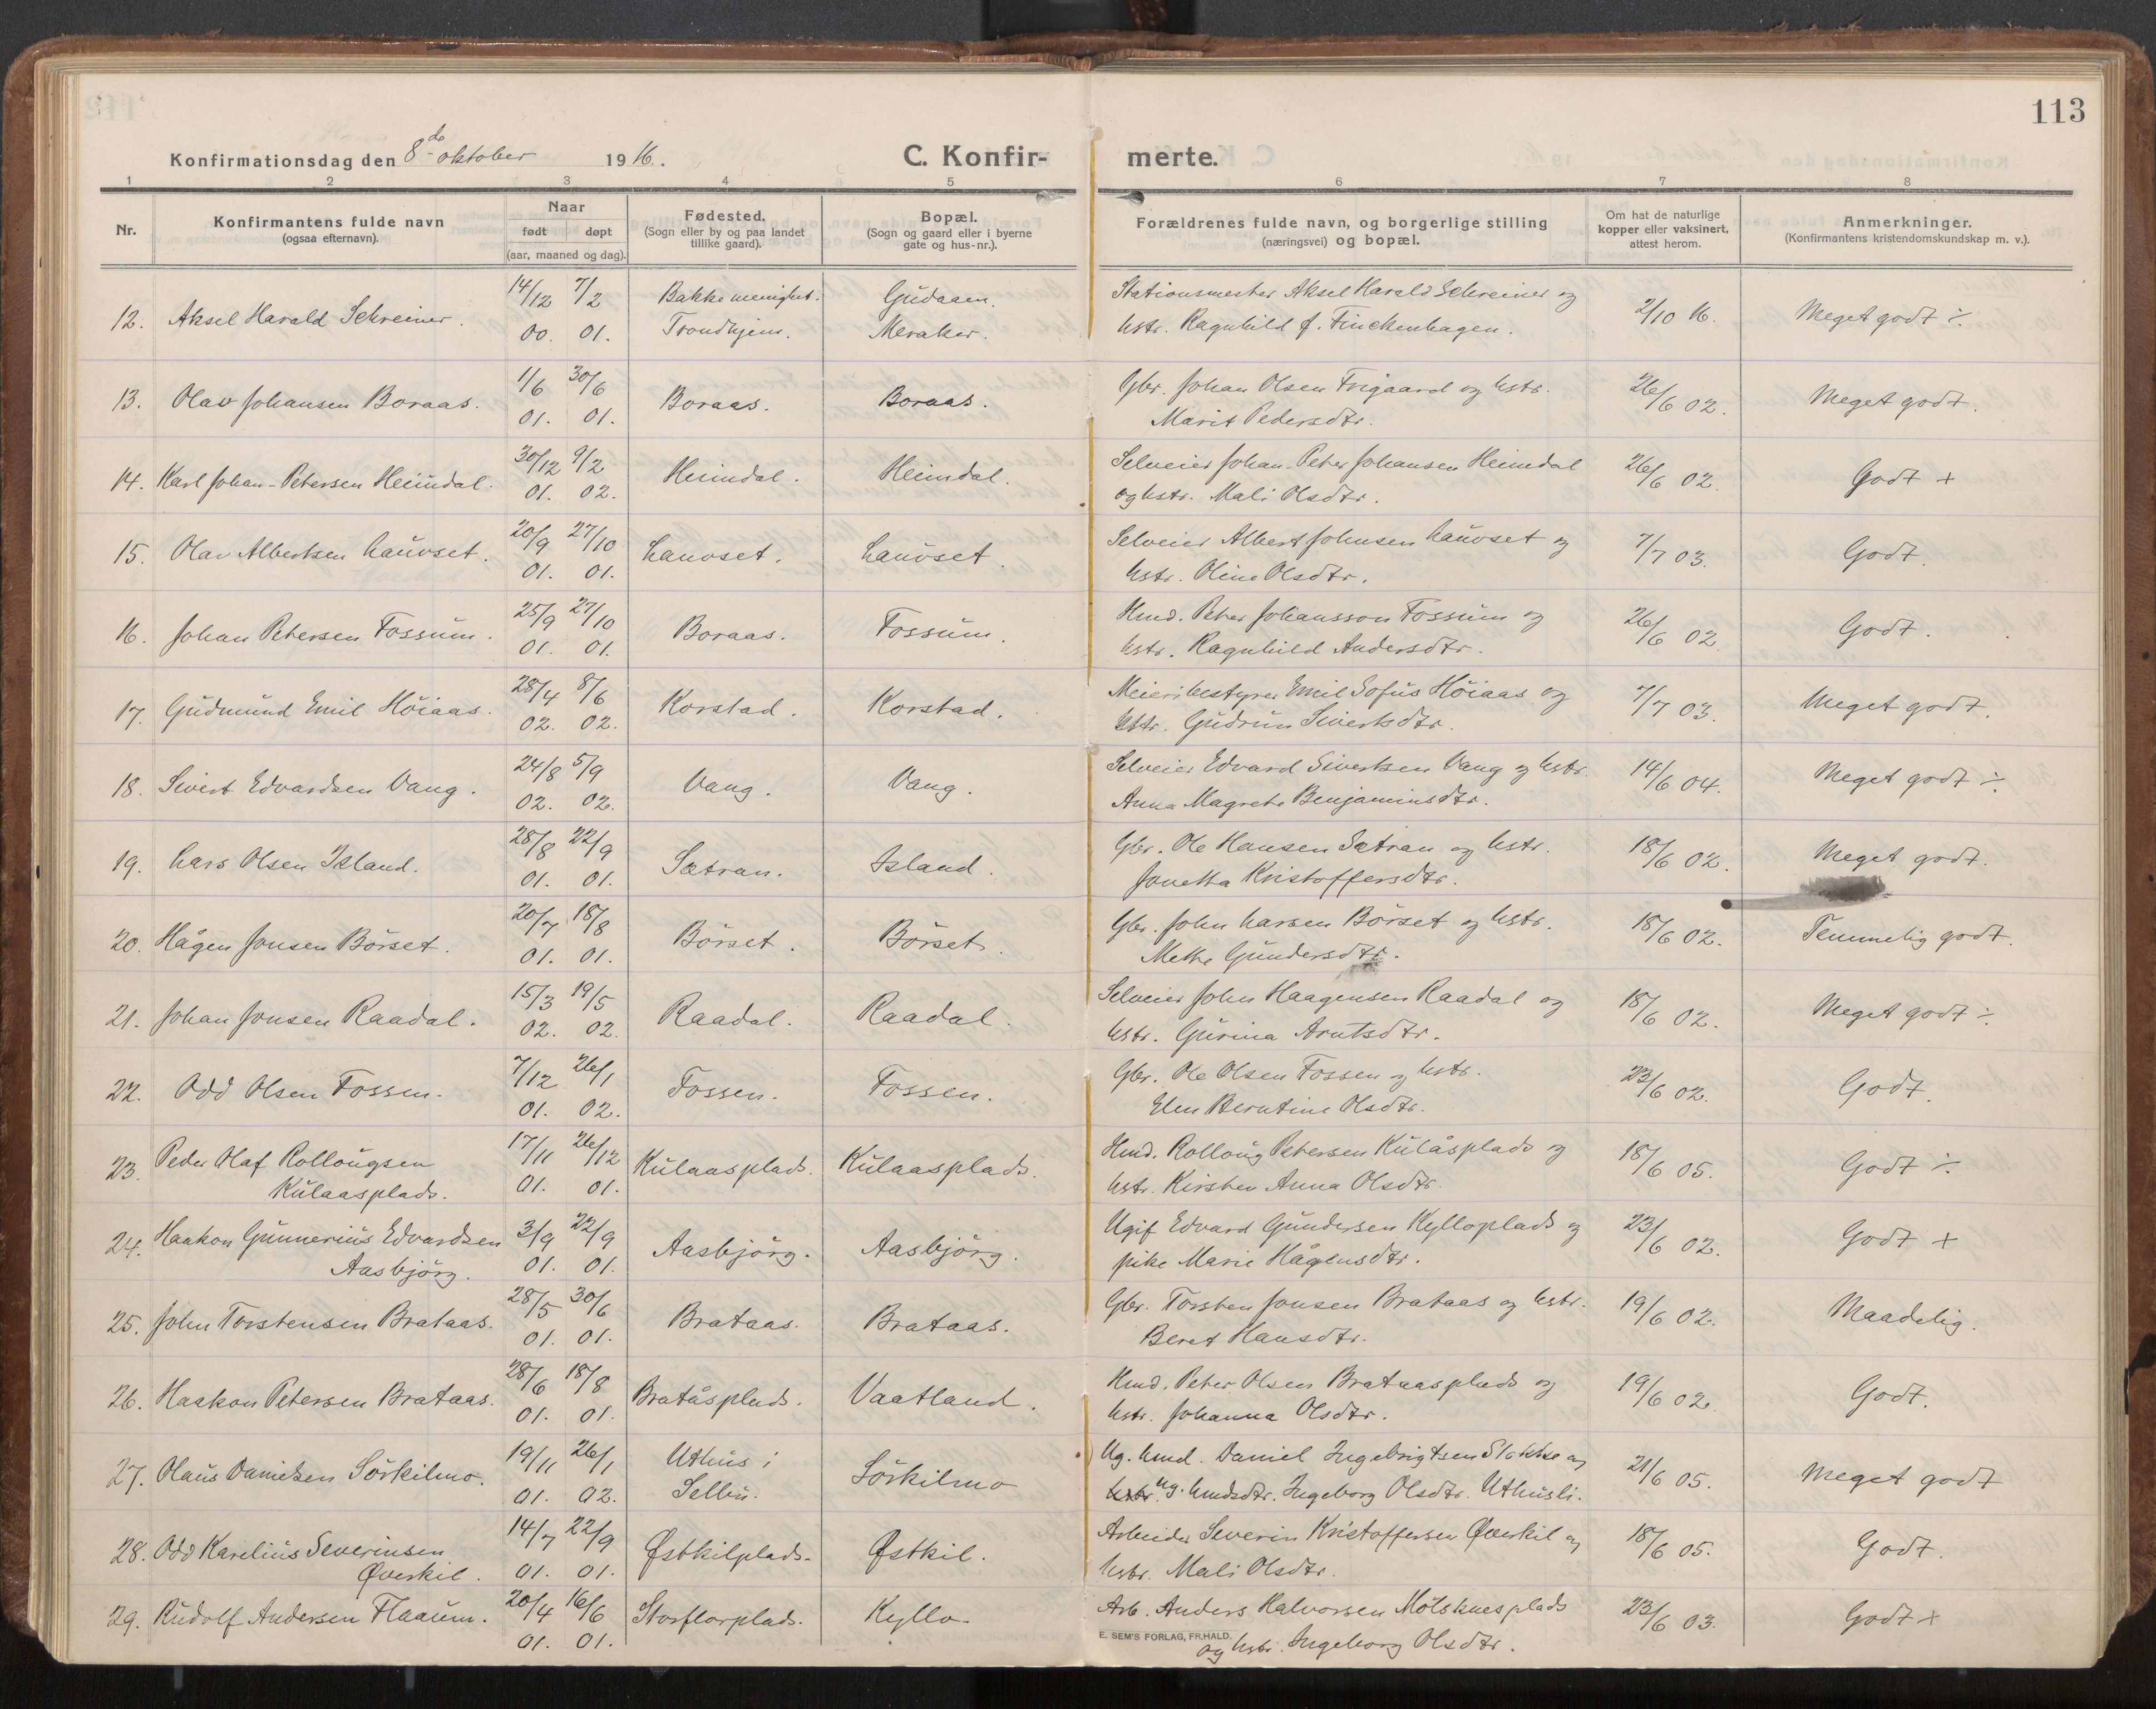 113
Konfirmationsdag den 8de oktober 1916.
C. Konfir- merte.
1 2 3 4 5 6 7 8
Nr.
Konfirmantens fulde navn
(ogsaa efternavn).
Naar
født døpt
(aar, maaned og dag).
Fødested.
(Sogn eller by og paa landet
tillike gaard).
Bopæl.
(Sogn og gaard eller i byerne
gate og hus-nr.).
Forældrenes fulde navn, og borgerlige stilling
(næringsvei) og bopæl.
Om hat de naturlige
kopper eller vaksinert,
attest herom.
Anmerkninger.
(Konfirmantens kristendomskundskap m. v.).
14/12 7/2 Bakke menighet. Gudaaen. Stationsmester Aksel Harald Schreiner og
12. Aksel Harald Schreiner. 00. 01. Trondhjem. Meraker. hstr. Ragnhild f. Finckenhagen. 2/10 16. Meget godt ÷.
1/6 30/6 Gbr. Johan Olsen Trigaard og hstr.
13. Olav Johansen Boraas. 01. 01. Boraas. Boraas. Marit Pedersdtr. 26/6 02. Meget godt.
30/12 9/2 Selveier Johan Peter Johansen Heimdal
14. Karl Johan-Petersen Heimdal. 01. 02. Heimdal. Heimdal. og hstr. Mali Olsdtr. 26/6 02. Godt +
20/9 27/10 Selveier Albert Johnsen Lauvset og
15. Olav Albertsen Lauvset. 01. 01. Lauvset. Lauvset. hstr. Oline Olsdtr. 7/7 03. Godt.
25/9 27/10 Hmd. Peter Johansson Fossum og
16. Johan Petersen Fossum. 01. 01. Boraas. Fossum. hstr. Ragnhild Andersdtr. 26/6 02. Godt.
28/4 8/6 Meieribestyrer Emil Sofus Höiaas og
17. Gudmund Emil Höiaas. 02. 02. Korstad. Korstad. hstr. Gudrun Sivertsdtr. 7/7 03. Meget godt.
24/8 5/9 Selveier Edvard Sivertsen Vang og hstr.
18. Sivert Edvardsen Vang. 02. 02. Vang. Vang. Anna Magrete Benjaminsdtr. 14/6 04. Meget godt ÷.
28/8 22/9 Gbr. Ole Hansen Sætran og hstr.
19. Lars Olsen Island. 01. 01. Sætran. Island. Jonetta Kristoffersdtr. 18/6 02. Meget godt.
20/7 18/8 Gbr. John Larsen Börset og hstr.
20. Hågen Jonsen Börset. 01. 01. Börset. Börset. Mette Gundersdtr. 18/6 02. Temmelig godt.
15/3 19/5 Selveier John Haagensen Raadal og
21. Johan Jonsen Raadal. 02. 02. Raadal. Raadal. hstr. Gurina Arntsdtr. 18/6 02. Meget godt ÷.
7/12 26/1 Gbr. Ole Olsen Fossen og hstr.
22. Odd Olsen Fossen. 01. 02. Fossen. Fossen. Elen Berntine Olsdtr. 23/6 02. Godt.
23. Peder Olaf Rollougsen 17/11 26/12 Kulaasplads. Kulaasplads. Hmd. Rolloug Petersen Kulåsplads og
Kulaasplads. 01. 01. hstr. Kirsten Anna Olsdtr. 18/6 05. Godt ÷
24. Haakon Gunnerius Edvardsen 3/9 22/9 Aasbjörg. Aasbjörg. Ugif Edvard Gundersen Kylloplads og
Aasbjörg. 01. 01. pike Marie Hågensdtr. 23/6 02. Godt +
28/5 30/6 Gbr. Torsten Jonsen Brataas og hstr.
25. John Torstensen Brataas. 01. 01. Brataas. Brataas. Beret Hansdtr. 19/6 02. Maadelig.
28/6 18/8 Hmd. Peter Olsen Brataasplads og
26. Haakon Petersen Brataas. 01. 01. Bratåsplads. Vaatland. hstr. Johanna Olsdtr. 19/6 02. Godt.
19/11 26/1 Uthus i Ug. hmd. Daniel Ingebrigtsen Stokke og
27. Olaus Danielsen Sörkilmo. 01. 02. Selbu. Sörkilmo hstr. ug. hmdsdtr. Ingeborg Olsdtr. Uthusli. 21/6 05. Meget godt
28. Odd Karelius Severinsen 14/7 22/9 Østkilplads. Østkil. Arbeider Severin Kristoffersen Øverkil og
Øverkil. 01. 01. hstr. Mali Olsdtr. 18/6 05. Godt.
29. Rudolf Andersen Flaaum. 20/4 16/6 Storflorplads. Kyllo. Arb. Anders Halvorsen Mölsknesplads
01. 01. og hstr. Ingeborg Olsdtr. 23/6 03. Godt +
E. SEM'S FORLAG, FR.HALD.